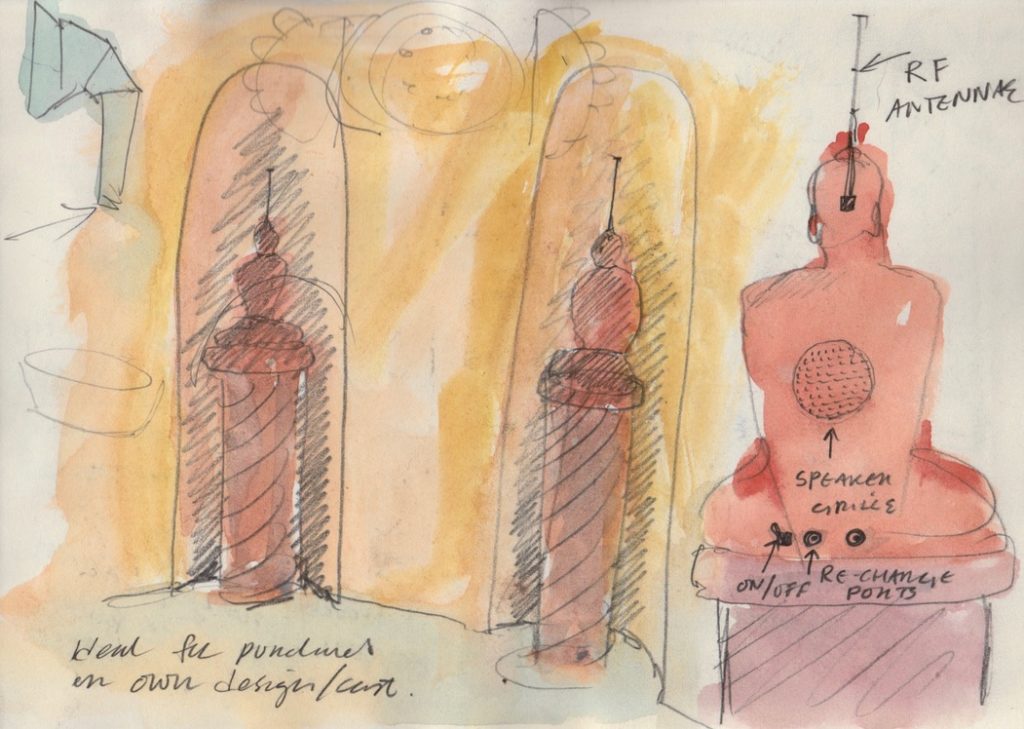 RF
ANTENNAE
SPEAKER
GRILLE
ON/OFF
RE-CHARGE
PORTS
Ideal for
in own design/cast.